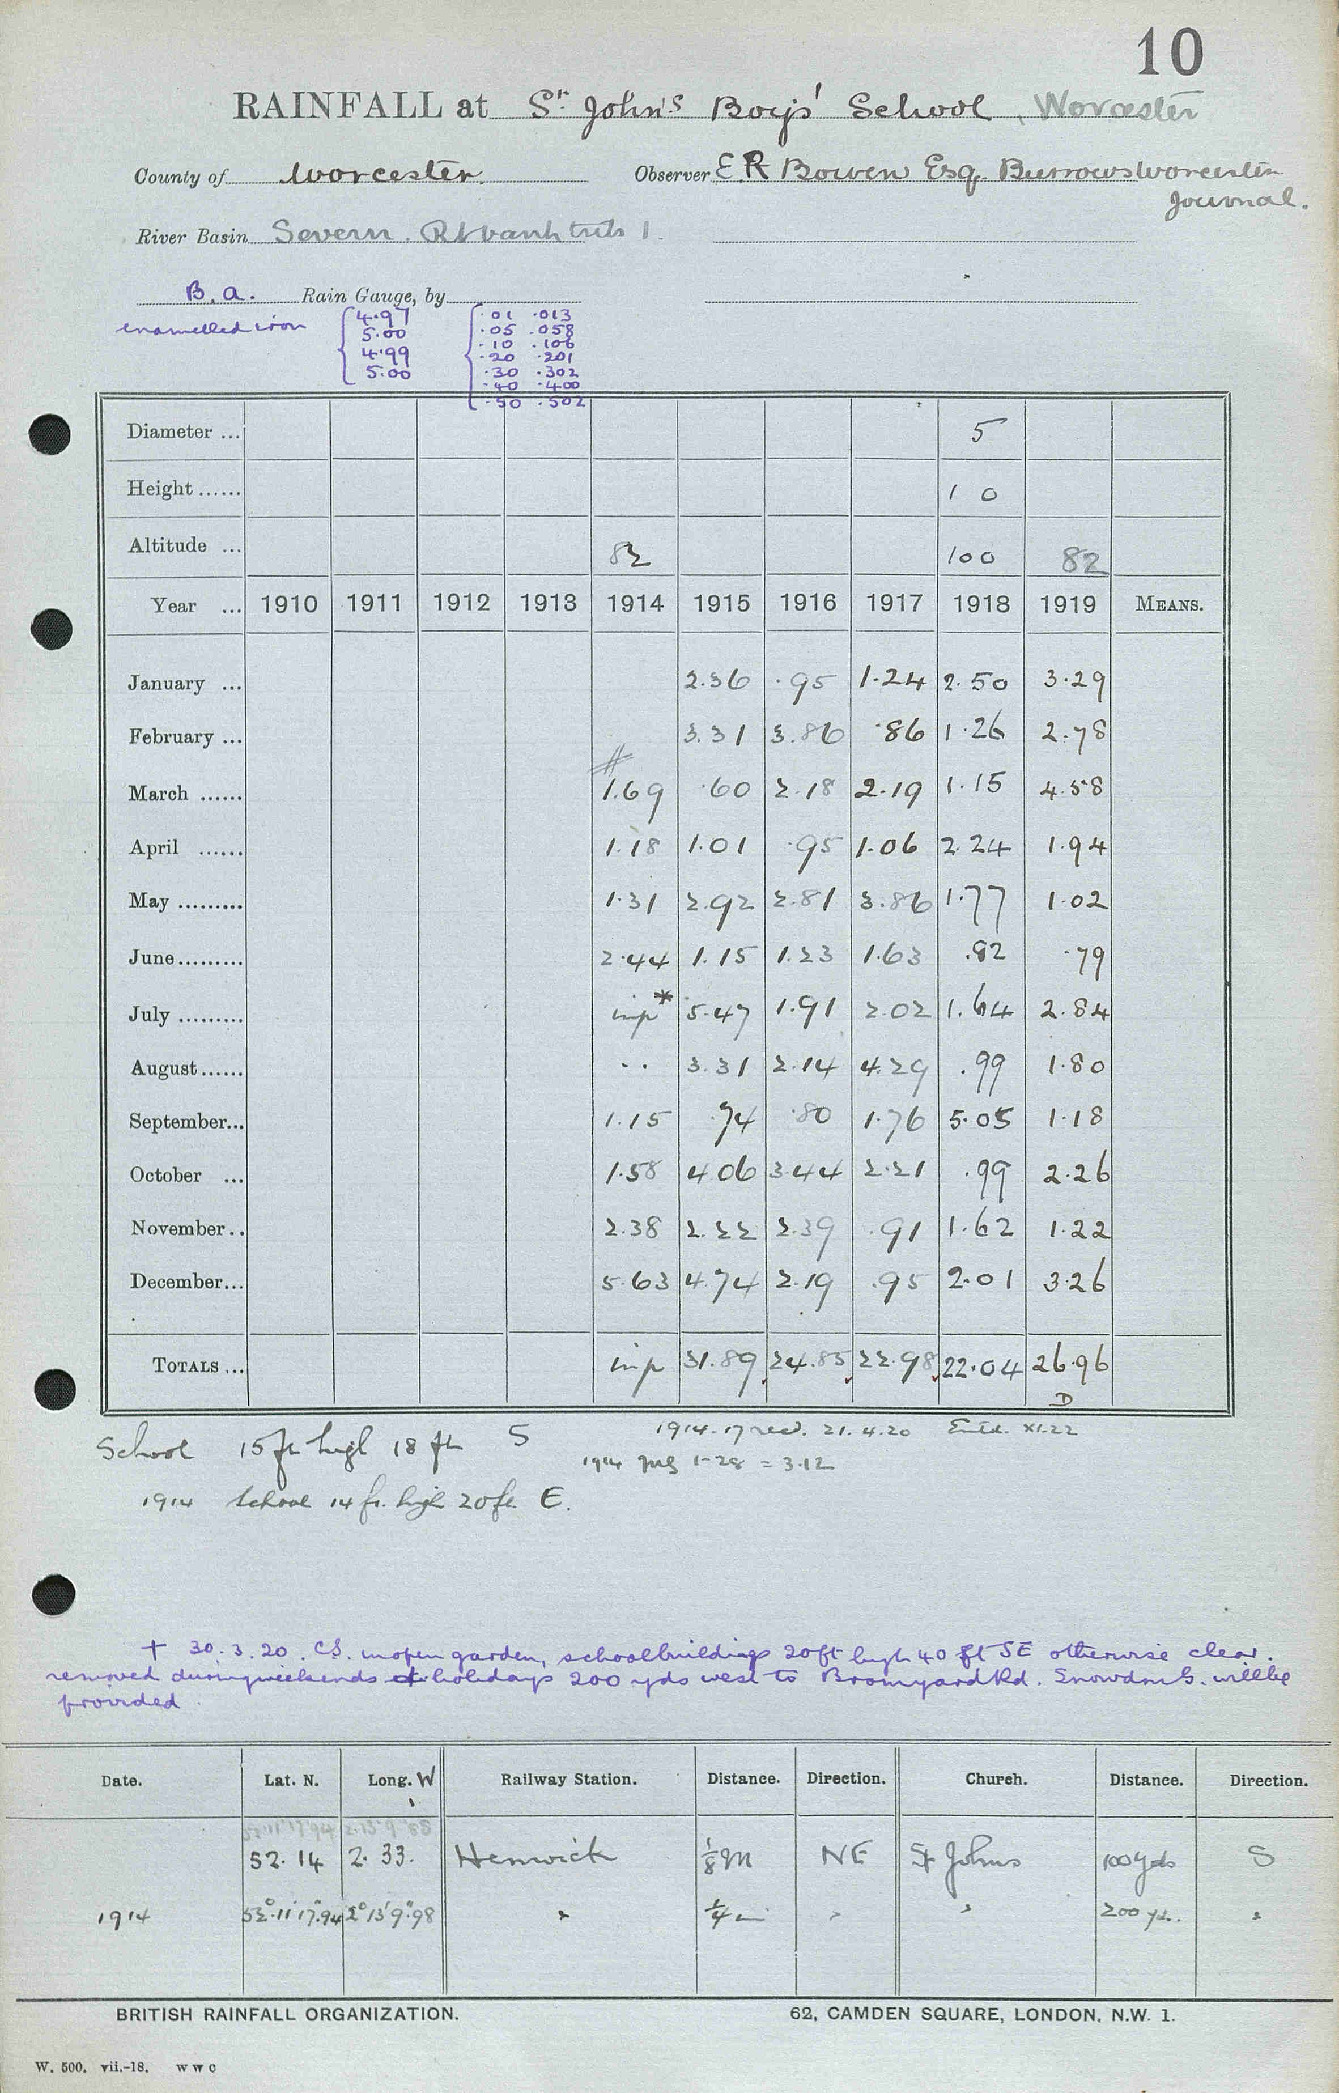 10
RAINFALL at St. John's Boys' School, Worcester
County of Worcester Observer E.R Bowen Esq. Burrows Worcester
Journal.
River Basin Severn. Rt bank tribs 1.
B.a. Rain Gauge, by
enamelled iron
4.97 .01 .013
5.00 .05 .058
4.99 .10 .106
5.00 .20 .201
.30 .302
.40 .400
.50 .502
Diameter ... 5
Height ...... 1 0
Altitude ... 82 100 82
Year ... 1910 1911 1912 1913 1914 1915 1916 1917 1918 1919 MEANS.
January ... 2.36 .95 1.24 2.50 3.29
February ... 3.31 3.86 .86 1.26 2.78
March ...... 1.69 .60 2.18 2.19 1.15 4.58
April ...... 1.18 1.01 .95 1.06 2.24 1.94
May ......... 1.31 2.92 2.81 3.86 1.77 1.02
June ......... 2.44 1.15 1.23 1.63 .82 .79
July ......... imp* 5.47 1.91 2.02 1.64 2.84
August ...... .. 3.31 2.14 4.29 .99 1.80
September... 1.15 .74 .80 1.76 5.05 1.18
October ... 1.58 4.06 3.44 2.21 .99 2.26
November .. 2.38 2.22 2.39 .91 1.62 1.22
December... 5.63 4.74 2.19 .95 2.01 3.26
TOTALS ... imp 31.89 24.85 22.98 22.04 26.96
D
School 15 ft high 18 ft S 1914-17 recd. 21.4.20 Entd. XI.22
1914 1-28 = 3.12
1914 School 14 ft. high 20 ft. E.
+ 30.3.20. C.S. in open garden, school buildings 20 ft high 40 ft SE otherwise clear.
removed during weekends & holidays 200 yds west to Bromyard Rd. Snowdon G. will be
provided.
Date. Lat. N. Long. W Railway Station. Distance. Direction. Church. Distance. Direction.
52.14 2.33. Henwick 1/8 m NE St Johns 100 yds S
1914 52° 11' 17".94 2° 13' 9".98 " 1/4 m " " 200 yd. "
BRITISH RAINFALL ORGANIZATION. 62, CAMDEN SQUARE, LONDON, N.W. 1.
W. 500. vii.-18. W W C